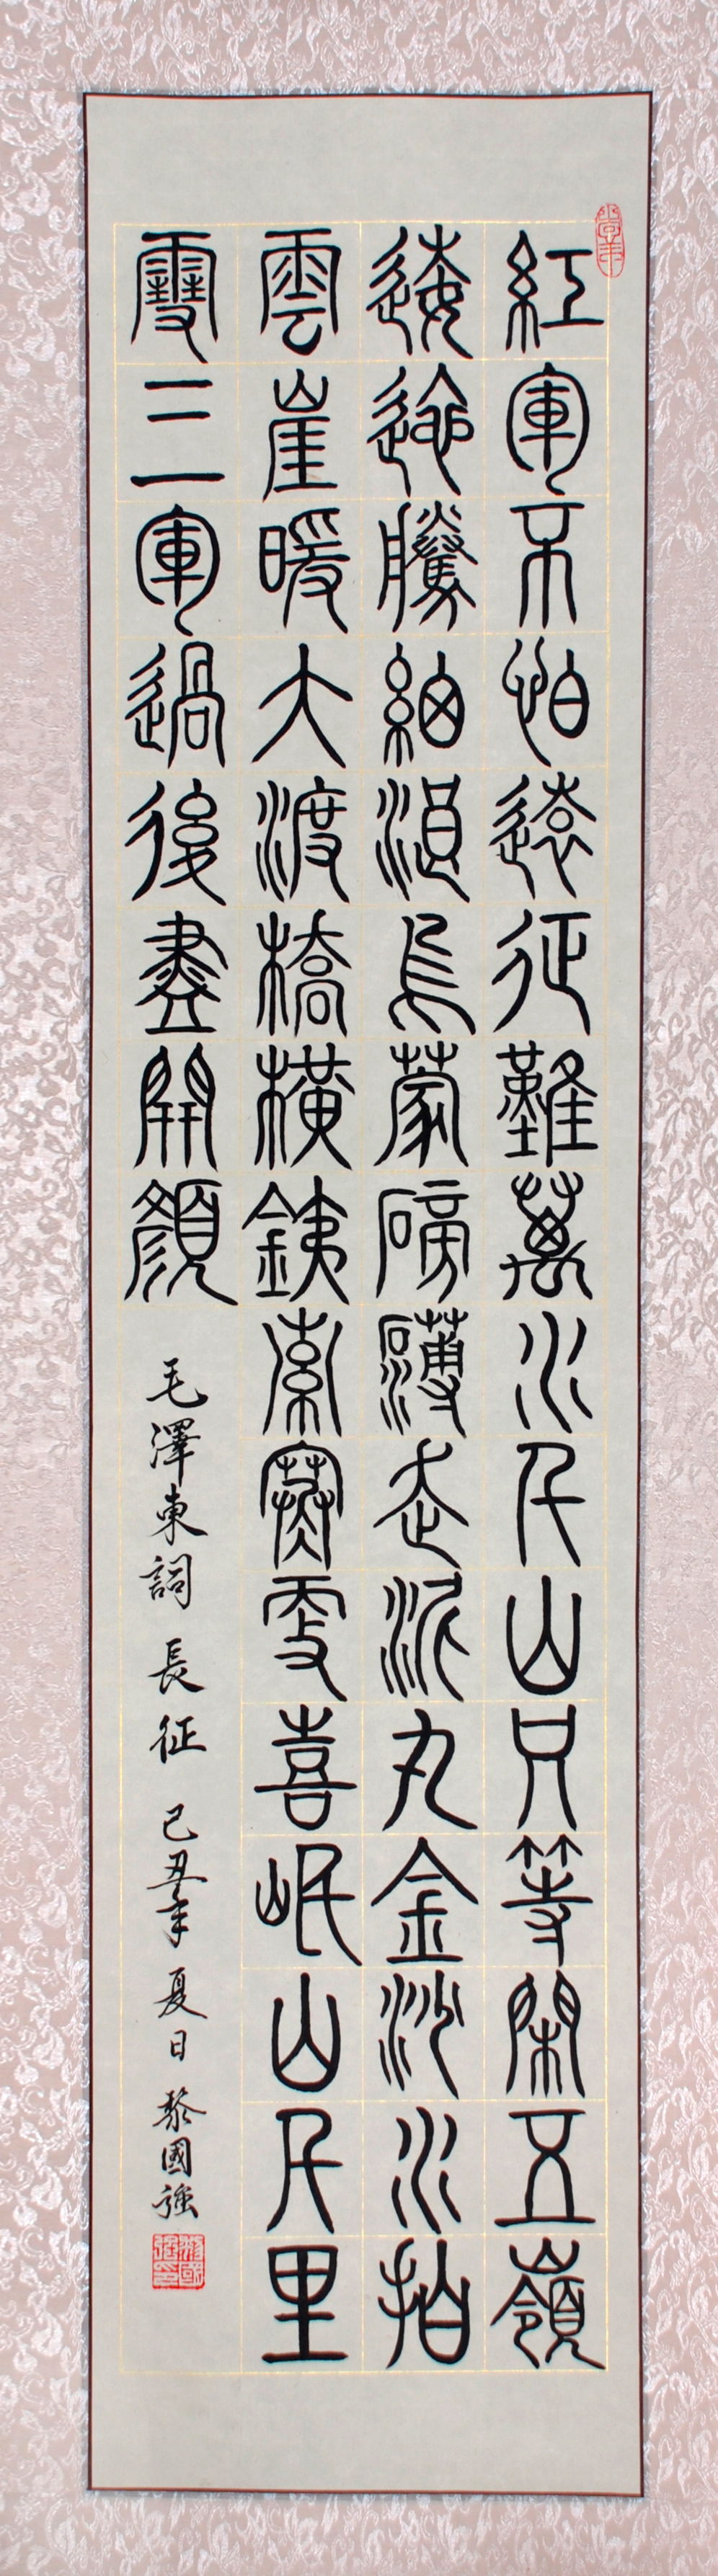 紅軍不怕遠征難萬水千山只等閑五嶺
逶迤騰細浪烏蒙磅礴走泥丸金沙水拍
雲崖暖大渡橋橫鐵索寒更喜岷山千里
雪三軍過後盡開顏 毛澤東詞 長征 己丑年 夏日 黎國強